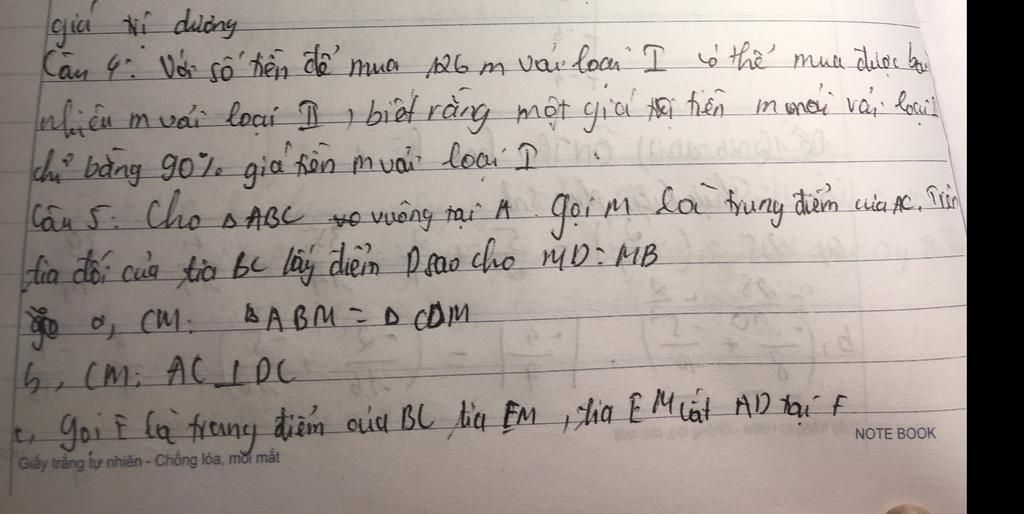 giá trí dương
Câu 4: Với số tiền để mua 126 m vải loại I có thể mua được
nhiêu m vải loại II, biết rằng một giá tiền m mỗi vải loại
chỉ bằng 90% giá tiền m vải loại I
Câu 5: Cho ΔABC vuông tại A. gọi M là trung điểm của AC. Trên
tia đối của tia BC lấy điểm D sao cho MD = MB
a, CM: ΔABM = Δ CDM
b, CM: AC ⊥ DC
c, gọi E là trung điểm của BC tia EM, tia EM cắt AD tại F
NOTE BOOK
Giấy trắng tự nhiên - Chống lóa, mỏi mắt